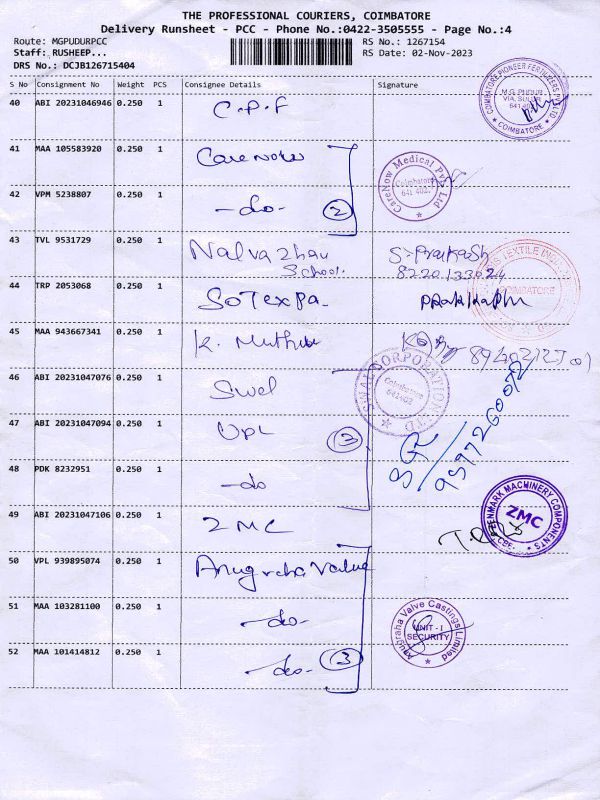 THE PROFESSIONAL COURIERS, COIMBATORE
Delivery Runsheet - PCC - Phone No.:0422-3505555 - Page No.:4
Route: MGPUDURPCC RS No.: 1267154
Staff: RUSHEEP... RS Date: 02-Nov-2023
DRS No.: DCJB126715404
S No Consignment No Weight PCS Consignee Details Signature
40 ABI 20231046946 0.250 1 C.P.F
COIMBATORE PIONEER FERTILIZERS
M.G. PUDUR
VIA. SULUR
COIMBATORE
41 MAA 105583920 0.250 1 Carenow
CareNow Medical Pvt. Ltd
Coimbatore
641 402.
42 VPM 5238807 0.250 1 -do- 2
43 TVL 9531729 0.250 1 Nalvazhau
School. S. Prakash
8220133024
TEXTILE
COIMBATORE
44 TRP 2053068 0.250 1 SOTEXPA.
45 MAA 943667341 0.250 1 K. Muthu
46 ABI 20231047076 0.250 1 Swel
SWAL CORPORATION LTD
Coimbatore
641402
47 ABI 20231047094 0.250 1 UPL 3
48 PDK 8232951 0.250 1 -do
49 ABI 20231047106 0.250 1 ZMC
ZENMARK MACHINERY COMPONENTS
ZMC
CBE.
50 VPL 939895074 0.250 1 Anugraha Valve
51 MAA 103281100 0.250 1 -do-
Anugraha Valve Castings Limited
UNIT - I
SECURITY
52 MAA 101414812 0.250 1 -do- 3